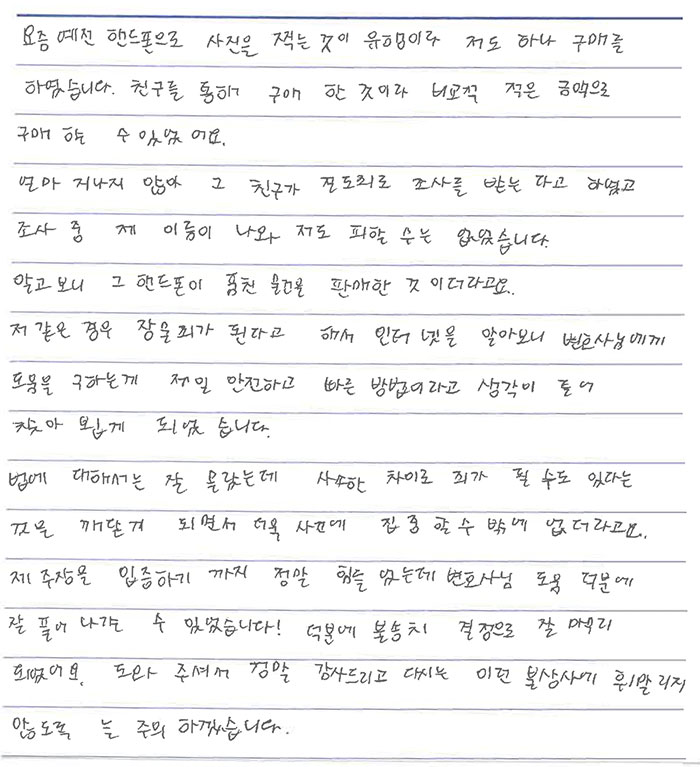 요즘 예전 핸드폰으로 사진을 찍는 것이 유행이라 저도 하나 구매를
하였습니다. 친구를 통해 구매 한 것이라 비교적 적은 금액으로
구매 할 수 있었 어요.
얼마 지나지 않아 그 친구가 절도죄로 조사를 받는 다고 하였고
조사 중 제 이름이 나와 저도 피할 수는 없었습니다.
알고보니 그 핸드폰이 훔친 물건을 판매한 것 이더라고요.
저 같은 경우 장물죄가 된다고 해서 인터 넷을 알아보니 변호사님에게
도움을 구하는게 제일 안전하고 빠른 방법이라고 생각이 들어
찾아 뵙게 되었 습니다.
법에 대해서는 잘 몰랐는데 사소한 차이로 죄가 될 수도 있다는
것을 깨닫게 되면서 더욱 사건에 집중 할 수 밖에 없더라고요.
제 주장을 입증하기 까지 정말 힘들 었는데 변호사님 도움 덕분에
잘 풀어 나가는 수 있었습니다! 덕분에 불송치 결정으로 잘 마무리
되었어요. 도와 주셔서 정말 감사드리고 다시는 이런 불상사에 휘말리지
않도록 늘 주의 하겠습니다.